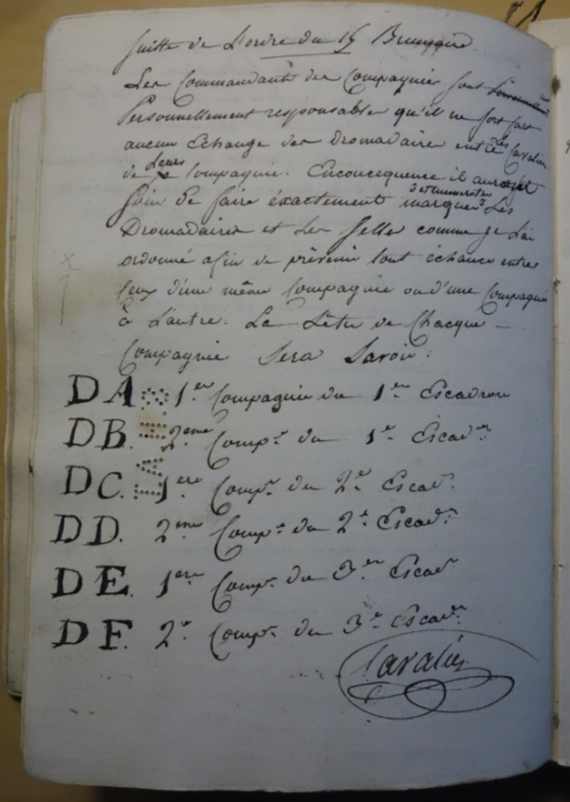 Suitte de L'ordre du 15 Brumaire
Les Commandants des Compagnie sont
Personnellement responsable qu'il ne soit fait
aucun Echange des Dromadaire entre les Cavaliers
de Leurs Compagnie. Enconcequence il auront
soin De faire éxactement marquer et numeroter Les
Dromadaires et Les Selles comme je L'ai
ordonné afin de prévenir tout échance entre
ceux d'une même Compagnie ou d'une Compagnie
à L'autre. La Lêtre de Chacque
Compagnie Sera Savoir:
DA. 1ere Compagnie du 1er Escadron
DB. 2eme Compe. du 1er Escadon
DC. 1ere Compe. du 2e Escadn.
DD. 2eme Compe. du 2e Escadn.
DE. 1ere Compe. du 3e Escadn
DF. 2e Compe. du 3e Escadn.
Cavalier